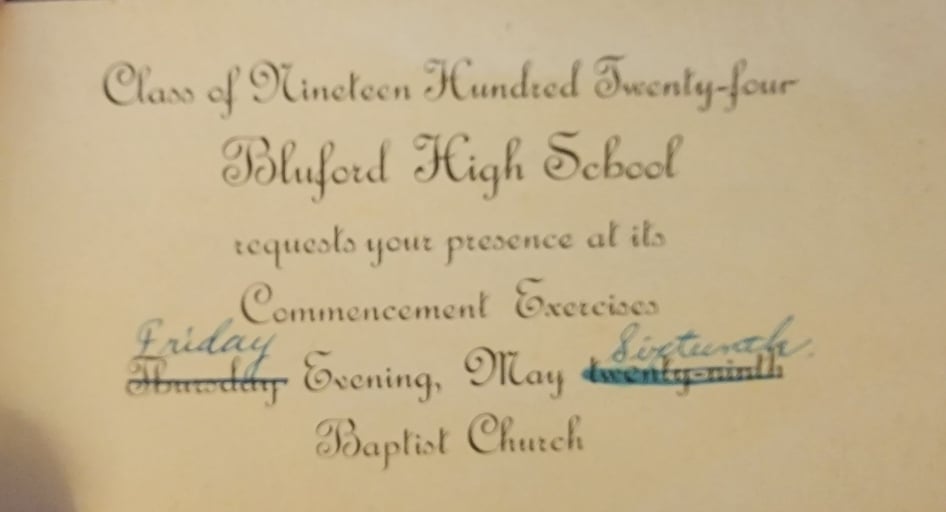 Class of Nineteen Hundred Twenty-four
Bluford High School
requests your presence at its
Commencement Exercises
Friday Sixteenth.
Thursday Evening, May twenty-ninth
Baptist Church